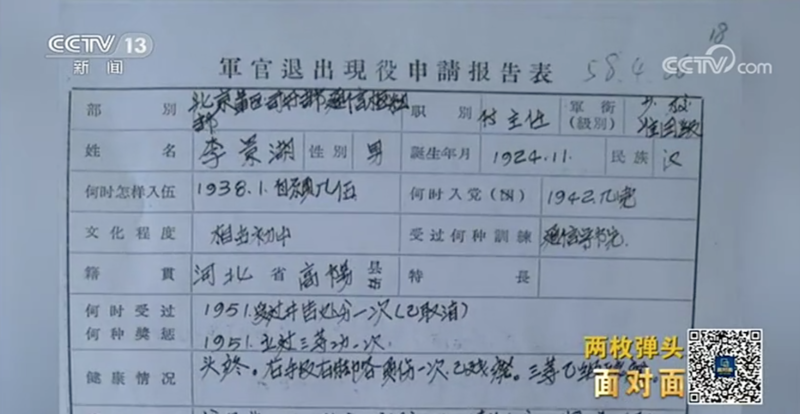 CCTV 13
新闻
18
CCTV.com
軍官退出現役申請报告表 58.4.
部 別 北京軍区司令部通信 部 职 別 付主任 軍衔(級別) 少校
姓 名 李景湖 性別 男 誕生年月 1924.11. 民族 汉
何时怎样入伍 1938.1.自願入伍 何时入党(团) 1942.
文化程度 相当初中 受过何种訓練
籍 貫 河北 省 高陽 县市 特 長
何时受过何种獎惩 1951.受过井告处分一次(已取消)
1951.立过三等功一次.
健康情况 头疼。右手及右 各負伤一次.已残廢。三等乙級
两枚弹头
面对面